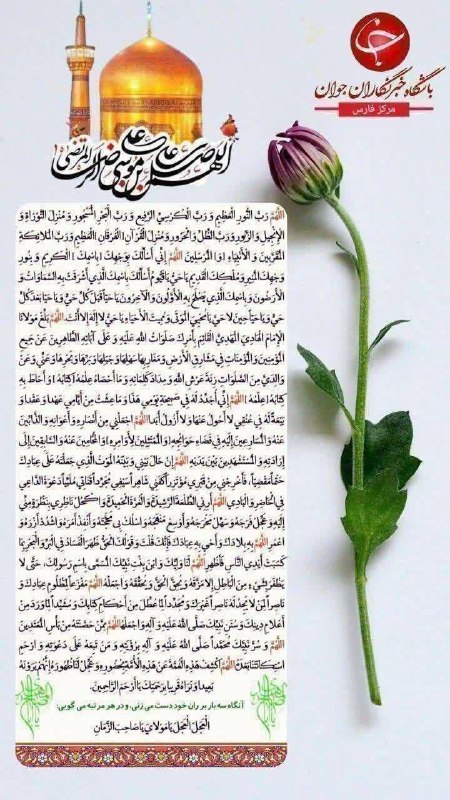 باشگاه خبرنگاران جوان
مرکز فارس
اللهم صل علی علی بن موسی الرضا المرتضی
اَللّٰهُمَّ رَبَّ النُّورِ الْعَظِيمِ وَ رَبَّ الْكُرْسِيِّ الرَّفِيعِ وَ رَبَّ الْبَحْرِ الْمَسْجُورِ وَ مُنْزِلَ التَّوْرَاةِ وَ
الْإِنْجِيلِ وَ الزَّبُورِ وَ رَبَّ الظِّلِّ وَ الْحَرُورِ وَ مُنْزِلَ الْقُرْآنِ [الْفُرْقَانِ] الْعَظِيمِ وَ رَبَّ الْمَلائِكَةِ
الْمُقَرَّبِينَ وَ الْأَنْبِيَاءِ [وَ] الْمُرْسَلِينَ اَللّٰهُمَّ إِنِّي أَسْأَلُكَ بِوَجْهِكَ [بِاسْمِكَ] الْكَرِيمِ وَ بِنُورِ
وَجْهِكَ الْمُنِيرِ وَ مُلْكِكَ الْقَدِيمِ يَا حَيُّ يَا قَيُّومُ أَسْأَلُكَ بِاسْمِكَ الَّذِي أَشْرَقَتْ بِهِ السَّمَاوَاتُ وَ
الْأَرَضُونَ وَ بِاسْمِكَ الَّذِي يَصْلَحُ بِهِ الْأَوَّلُونَ وَ الْآخِرُونَ يَا حَيّا قَبْلَ كُلِّ حَيٍّ وَ يَا حَيّا بَعْدَ كُلِّ
حَيٍّ وَ يَا حَيّا حِينَ لا حَيَّ يَا مُحْيِيَ الْمَوْتَى وَ مُمِيتَ الْأَحْيَاءِ يَا حَيُّ لا إِلَهَ إِلا أَنْتَ اَللّٰهُمَّ بَلِّغْ مَوْلانَا
الْإِمَامَ الْهَادِيَ الْمَهْدِيَّ الْقَائِمَ بِأَمْرِكَ صَلَوَاتُ اللَّهِ عَلَيْهِ وَ عَلَى آبَائِهِ الطَّاهِرِينَ عَنْ جَمِيعِ
الْمُؤْمِنِينَ وَ الْمُؤْمِنَاتِ فِي مَشَارِقِ الْأَرْضِ وَ مَغَارِبِهَا سَهْلِهَا وَ جَبَلِهَا وَ بَرِّهَا وَ بَحْرِهَا وَ عَنِّي وَ عَنْ
وَالِدَيَّ مِنَ الصَّلَوَاتِ زِنَةَ عَرْشِ اللَّهِ وَ مِدَادَ كَلِمَاتِهِ وَ مَا أَحْصَاهُ عِلْمُهُ [كِتَابُهُ] وَ أَحَاطَ بِهِ
كِتَابُهُ [عِلْمُهُ] اَللّٰهُمَّ إِنِّي أُجَدِّدُ لَهُ فِي صَبِيحَةِ يَوْمِي هَذَا وَ مَا عِشْتُ مِنْ أَيَّامِي عَهْدا وَ عَقْدا وَ
بَيْعَةً لَهُ فِي عُنُقِي لا أَحُولُ عَنْهَا وَ لا أَزُولُ أَبَدا اَللّٰهُمَّ اجْعَلْنِي مِنْ أَنْصَارِهِ وَ أَعْوَانِهِ وَ الذَّابِّينَ
عَنْهُ وَ الْمُسَارِعِينَ إِلَيْهِ فِي قَضَاءِ حَوَائِجِهِ [وَ الْمُمْتَثِلِينَ لِأَوَامِرِهِ] وَ الْمُحَامِينَ عَنْهُ وَ السَّابِقِينَ إِلَى
إِرَادَتِهِ وَ الْمُسْتَشْهَدِينَ بَيْنَ يَدَيْهِ اَللّٰهُمَّ إِنْ حَالَ بَيْنِي وَ بَيْنَهُ الْمَوْتُ الَّذِي جَعَلْتَهُ عَلَى عِبَادِكَ
حَتْما مَقْضِيّا، فَأَخْرِجْنِي مِنْ قَبْرِي مُؤْتَزِرا كَفَنِي شَاهِرا سَيْفِي مُجَرِّدا قَنَاتِي مُلَبِّيا دَعْوَةَ الدَّاعِي
فِي الْحَاضِرِ وَ الْبَادِي اَللّٰهُمَّ أَرِنِي الطَّلْعَةَ الرَّشِيدَةَ وَ الْغُرَّةَ الْحَمِيدَةَ وَ اكْحُلْ نَاظِرِي بِنَظْرَةٍ مِنِّي
إِلَيْهِ وَ عَجِّلْ فَرَجَهُ وَ سَهِّلْ مَخْرَجَهُ وَ أَوْسِعْ مَنْهَجَهُ وَ اسْلُكْ بِي مَحَجَّتَهُ وَ أَنْفِذْ أَمْرَهُ وَ اشْدُدْ أَزْرَهُ وَ
اعْمُرِ اَللّٰهُمَّ بِهِ بِلادَكَ وَ أَحْيِ بِهِ عِبَادَكَ فَإِنَّكَ قُلْتَ وَ قَوْلُكَ الْحَقُّ ظَهَرَ الْفَسَادُ فِي الْبَرِّ وَ الْبَحْرِ بِمَا
كَسَبَتْ أَيْدِي النَّاسِ فَأَظْهِرِ اَللّٰهُمَّ لَنَا وَلِيَّكَ وَ ابْنَ بِنْتِ نَبِيِّكَ الْمُسَمَّى بِاسْمِ رَسُولِكَ، حَتَّى لا
يَظْفَرَ بِشَيْءٍ مِنَ الْبَاطِلِ إِلا مَزَّقَهُ وَ يُحِقَّ الْحَقَّ وَ يُحَقِّقَهُ وَ اجْعَلْهُ اَللّٰهُمَّ مَفْزَعا لِمَظْلُومِ عِبَادِكَ وَ
نَاصِرا لِمَنْ لا يَجِدُ لَهُ نَاصِرا غَيْرَكَ وَ مُجَدِّدا لِمَا عُطِّلَ مِنْ أَحْكَامِ كِتَابِكَ وَ مُشَيِّدا لِمَا وَرَدَ مِنْ
أَعْلامِ دِينِكَ وَ سُنَنِ نَبِيِّكَ صَلَّى اللَّهُ عَلَيْهِ وَ آلِهِ وَ اجْعَلْهُ اَللّٰهُمَّ مِمَّنْ حَصَّنْتَهُ مِنْ بَأْسِ الْمُعْتَدِينَ
اَللّٰهُمَّ وَ سُرَّ نَبِيَّكَ مُحَمَّدا صَلَّى اللَّهُ عَلَيْهِ وَ آلِهِ بِرُؤْيَتِهِ وَ مَنْ تَبِعَهُ عَلَى دَعْوَتِهِ وَ ارْحَمِ
اسْتِكَانَتَنَا بَعْدَهُ اَللّٰهُمَّ اكْشِفْ هَذِهِ الْغُمَّةَ عَنْ هَذِهِ الْأُمَّةِ بِحُضُورِهِ وَ عَجِّلْ لَنَا ظُهُورَهُ إِنَّهُمْ يَرَوْنَهُ
بَعِيدا وَ نَرَاهُ قَرِيبا بِرَحْمَتِكَ يَا أَرْحَمَ الرَّاحِمِينَ.
آنگاه سه بار بر ران خود دست می زنی، و در هر مرتبه می گویی:
الْعَجَلَ الْعَجَلَ يَا مَوْلايَ يَا صَاحِبَ الزَّمَانِ